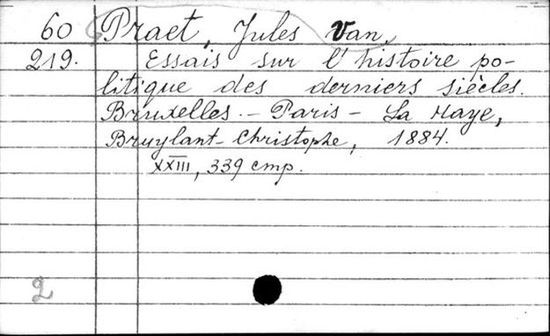 60 Praet, Jules Van,
219. Essais sur l'histoire po-
litique des derniers siècles.
Bruxelles. - Paris - La Haye,
Bruylant-Christophe, 1884.
XXIII, 339 cmp.
2